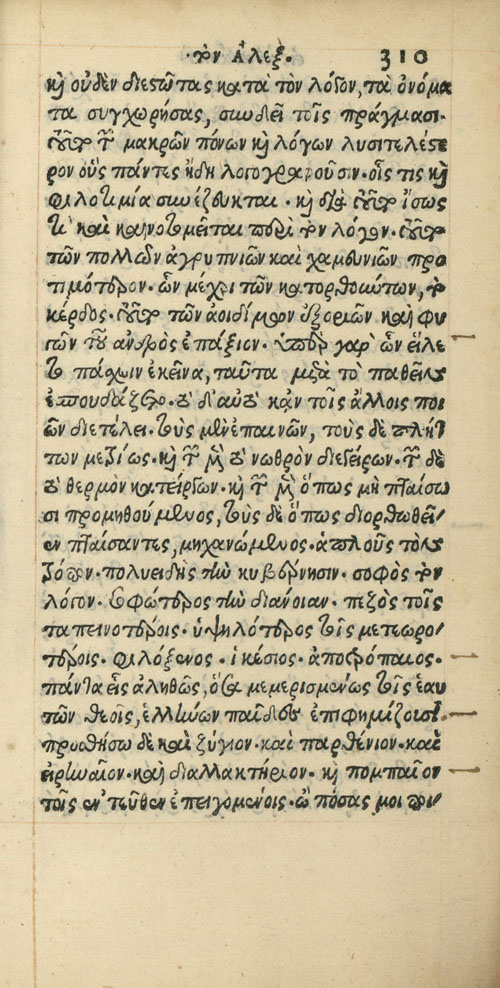 τὸν Ἀλεξ. 310
καὶ οὐδὲν διεστῶτας κατὰ τὸν λόγον, τὰ ὀνόμα
τα συγχωρήσας, συνδεῖ τοῖς πράγμασι.
τοῦτο τῶν μακρῶν πόνων καὶ λόγων λυσιτελέστε
ρον οὓς πάντες ἤδη λογογραφοῦσιν. οἷς τις καὶ
φιλοτιμία συνέζευκται. καὶ διὰ τοῦτο ἴσως
τι καὶ καινοτομεῖται περὶ τὸν λόγον. τοῦτο
τῶν πολλῶν ἀγρυπνιῶν καὶ χαμευνιῶν προ
τιμότερον. ὧν μέχρι τῶν κατορθούντων, τὸ
κέρδος. τοῦτο τῶν ἀοιδίμων ἐξοριῶν καὶ φυ
γῶν τοῦ ἀνδρὸς ἐπάξιον. ὑπὲρ γὰρ ὧν εἵλε
το πάσχειν ἐκεῖνα, ταῦτα μετὰ τὸ παθεῖν
ἐσπουδάζετο. τὸ δ'αὐτὸ κἀν τοῖς ἄλλοις ποι
ῶν διετέλει. τοὺς μὲν ἐπαινῶν, τοὺς δὲ πλήτ
των μετρίως. καὶ τῶν μὲν τὸ νωθρὸν διεγείρων. τῶν δὲ
τὸ θερμὸν κατείργων. καὶ τῶν μὲν ὅπως μὴ πταίσω
σι προμηθούμενος, τοὺς δὲ ὅπως διορθωθεῖ
εν πταίσαντες, μηχανώμενος. ἁπλοῦς τὸν
τρόπον. πολυειδὴς τὴν κυβέρνησιν. σοφὸς τὸν
λόγον. σοφώτερος τὴν διάνοιαν. πεζὸς τοῖς
ταπεινοτέροις. ὑψηλότερος τοῖς μετεωρο
τέροις. φιλόξενος. ἱκέσιος. ἀποτρόπαιος.
πάντα εἷς ἀληθῶς, ὅσα μεμερισμένως τοῖς ἑαυ
τῶν θεοῖς, ἑλλήνων παῖδες ἐπιφημίζουσι.
προσθήσω δὲ καὶ ζύγιον. καὶ παρθένιον. καὶ
εἰρηναῖον. καὶ διαλλακτήριον. καὶ πομπαῖον
τοῖς ἐντεῦθεν ἐπειγομένοις. ὢ πόσας μοι ποι